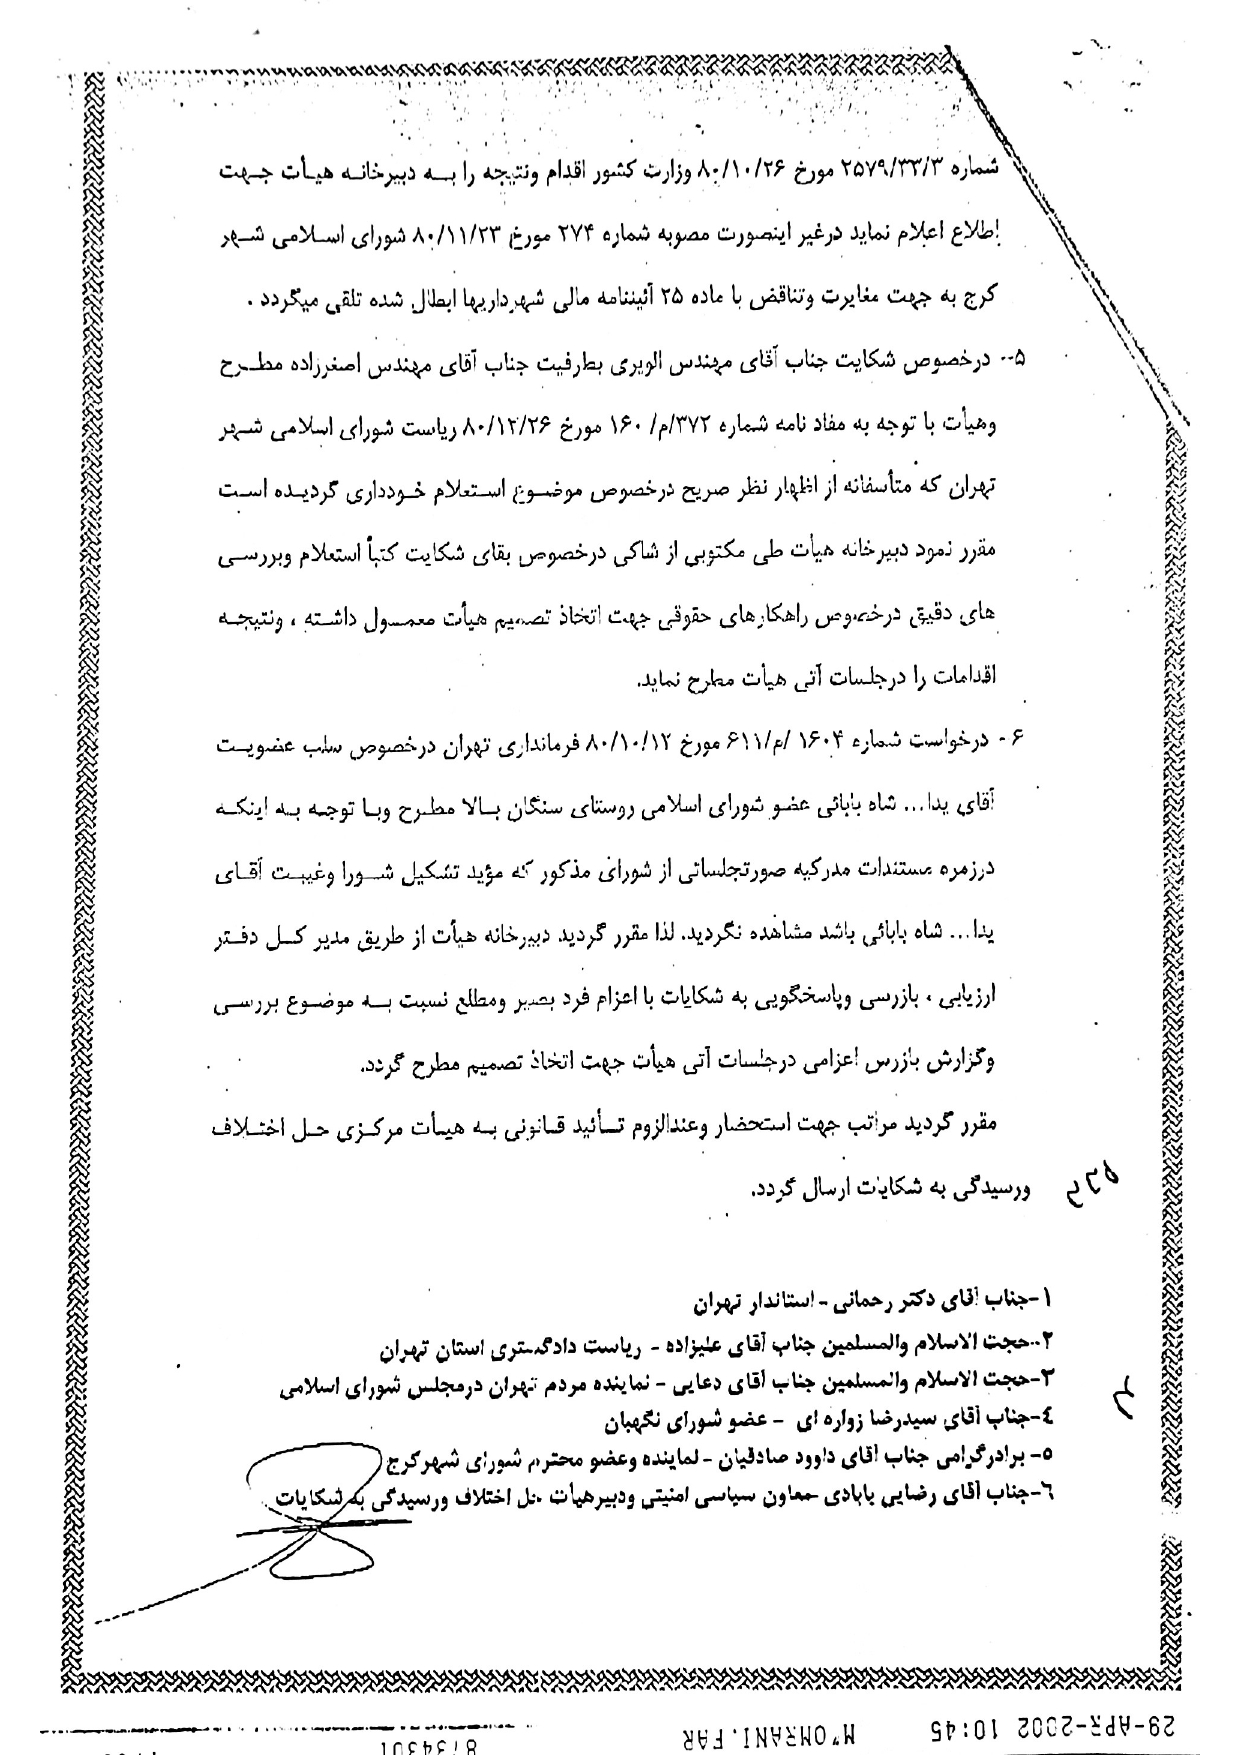 شماره ۲۵۷۹/۳۳/۳ مورخ ۸۰/۱۰/۲۶ وزارت کشور اقدام ونتیجه را به دبیرخانه هیأت جهت
اطلاع اعلام نماید درغیر اینصورت مصوبه شماره ۲۷۴ مورخ ۸۰/۱۱/۲۳ شورای اسلامی شهر
کرج به جهت مغایرت وتناقض با ماده ۲۵ آئیننامه مالی شهرداریها ابطال شده تلقی میگردد .
۵-- درخصوص شکایت جناب آقای مهندس الویری بطرفیت جناب آقای مهندس اصغرزاده مطرح
وهیأت با توجه به مفاد نامه شماره ۳۷۲/م/۱۶۰ مورخ ۸۰/۱۲/۲۶ ریاست شورای اسلامی شهر
تهران که متأسفانه از اظهار نظر صریح درخصوص موضوع استعلام خودداری گردیده است
مقرر نمود دبیرخانه هیأت طی مکتوبی از شاکی درخصوص بقای شکایت کتبأ استعلام وبررسی
های دقیق درخصوص راهکارهای حقوقی جهت اتخاذ تصمیم هیأت معمول داشته ، ونتیجه
اقدامات را درجلسات آتی هیأت مطرح نماید.
۶ - درخواست شماره ۱۶۰۴ /م/۶۱۱ مورخ ۸۰/۱۰/۱۲ فرمانداری تهران درخصوص سلب عضویت
آقای یدا... شاه بابائی عضو شورای اسلامی روستای سنگان بالا مطرح وبا توجه به اینکه
درزمره مستندات مدرکیه صورتجلساتی از شورای مذکور که مؤید تشکیل شورا وغیبت آقای
یدا... شاه بابائی باشد مشاهده نگردید. لذا مقرر گردید دبیرخانه هیأت از طریق مدیر کل دفتر
ارزیابی ، بازرسی وپاسخگویی به شکایات با اعزام فرد بصیر ومطلع نسبت به موضوع بررسی
وگزارش بازرس اعزامی درجلسات آتی هیأت جهت اتخاذ تصمیم مطرح گردد.
مقرر گردید مراتب جهت استحضار وعندالزوم تأئید قانونی به هیأت مرکزی حل اختلاف
ورسیدگی به شکایات ارسال گردد.
۱-جناب آقای دکتر رحمانی - استاندار تهران
۲--حجت الاسلام والمسلمین جناب آقای علیزاده - ریاست دادگستری استان تهران
۳-حجت الاسلام والمسلمین جناب آقای دعایی - نماینده مردم تهران درمجلس شورای اسلامی
٤-جناب آقای سیدرضا زواره ای - عضو شورای نگهبان
۵- برادرگرامی جناب آقای داوود صادقیان - نماینده وعضو محترم شورای شهرکرج
٦-جناب آقای رضایی بابادی معاون سیاسی امنیتی ودبیرهیأت حل اختلاف ورسیدگی به شکایات
29-APR-2002 10:45 M'OMRANI.FAR 8734301